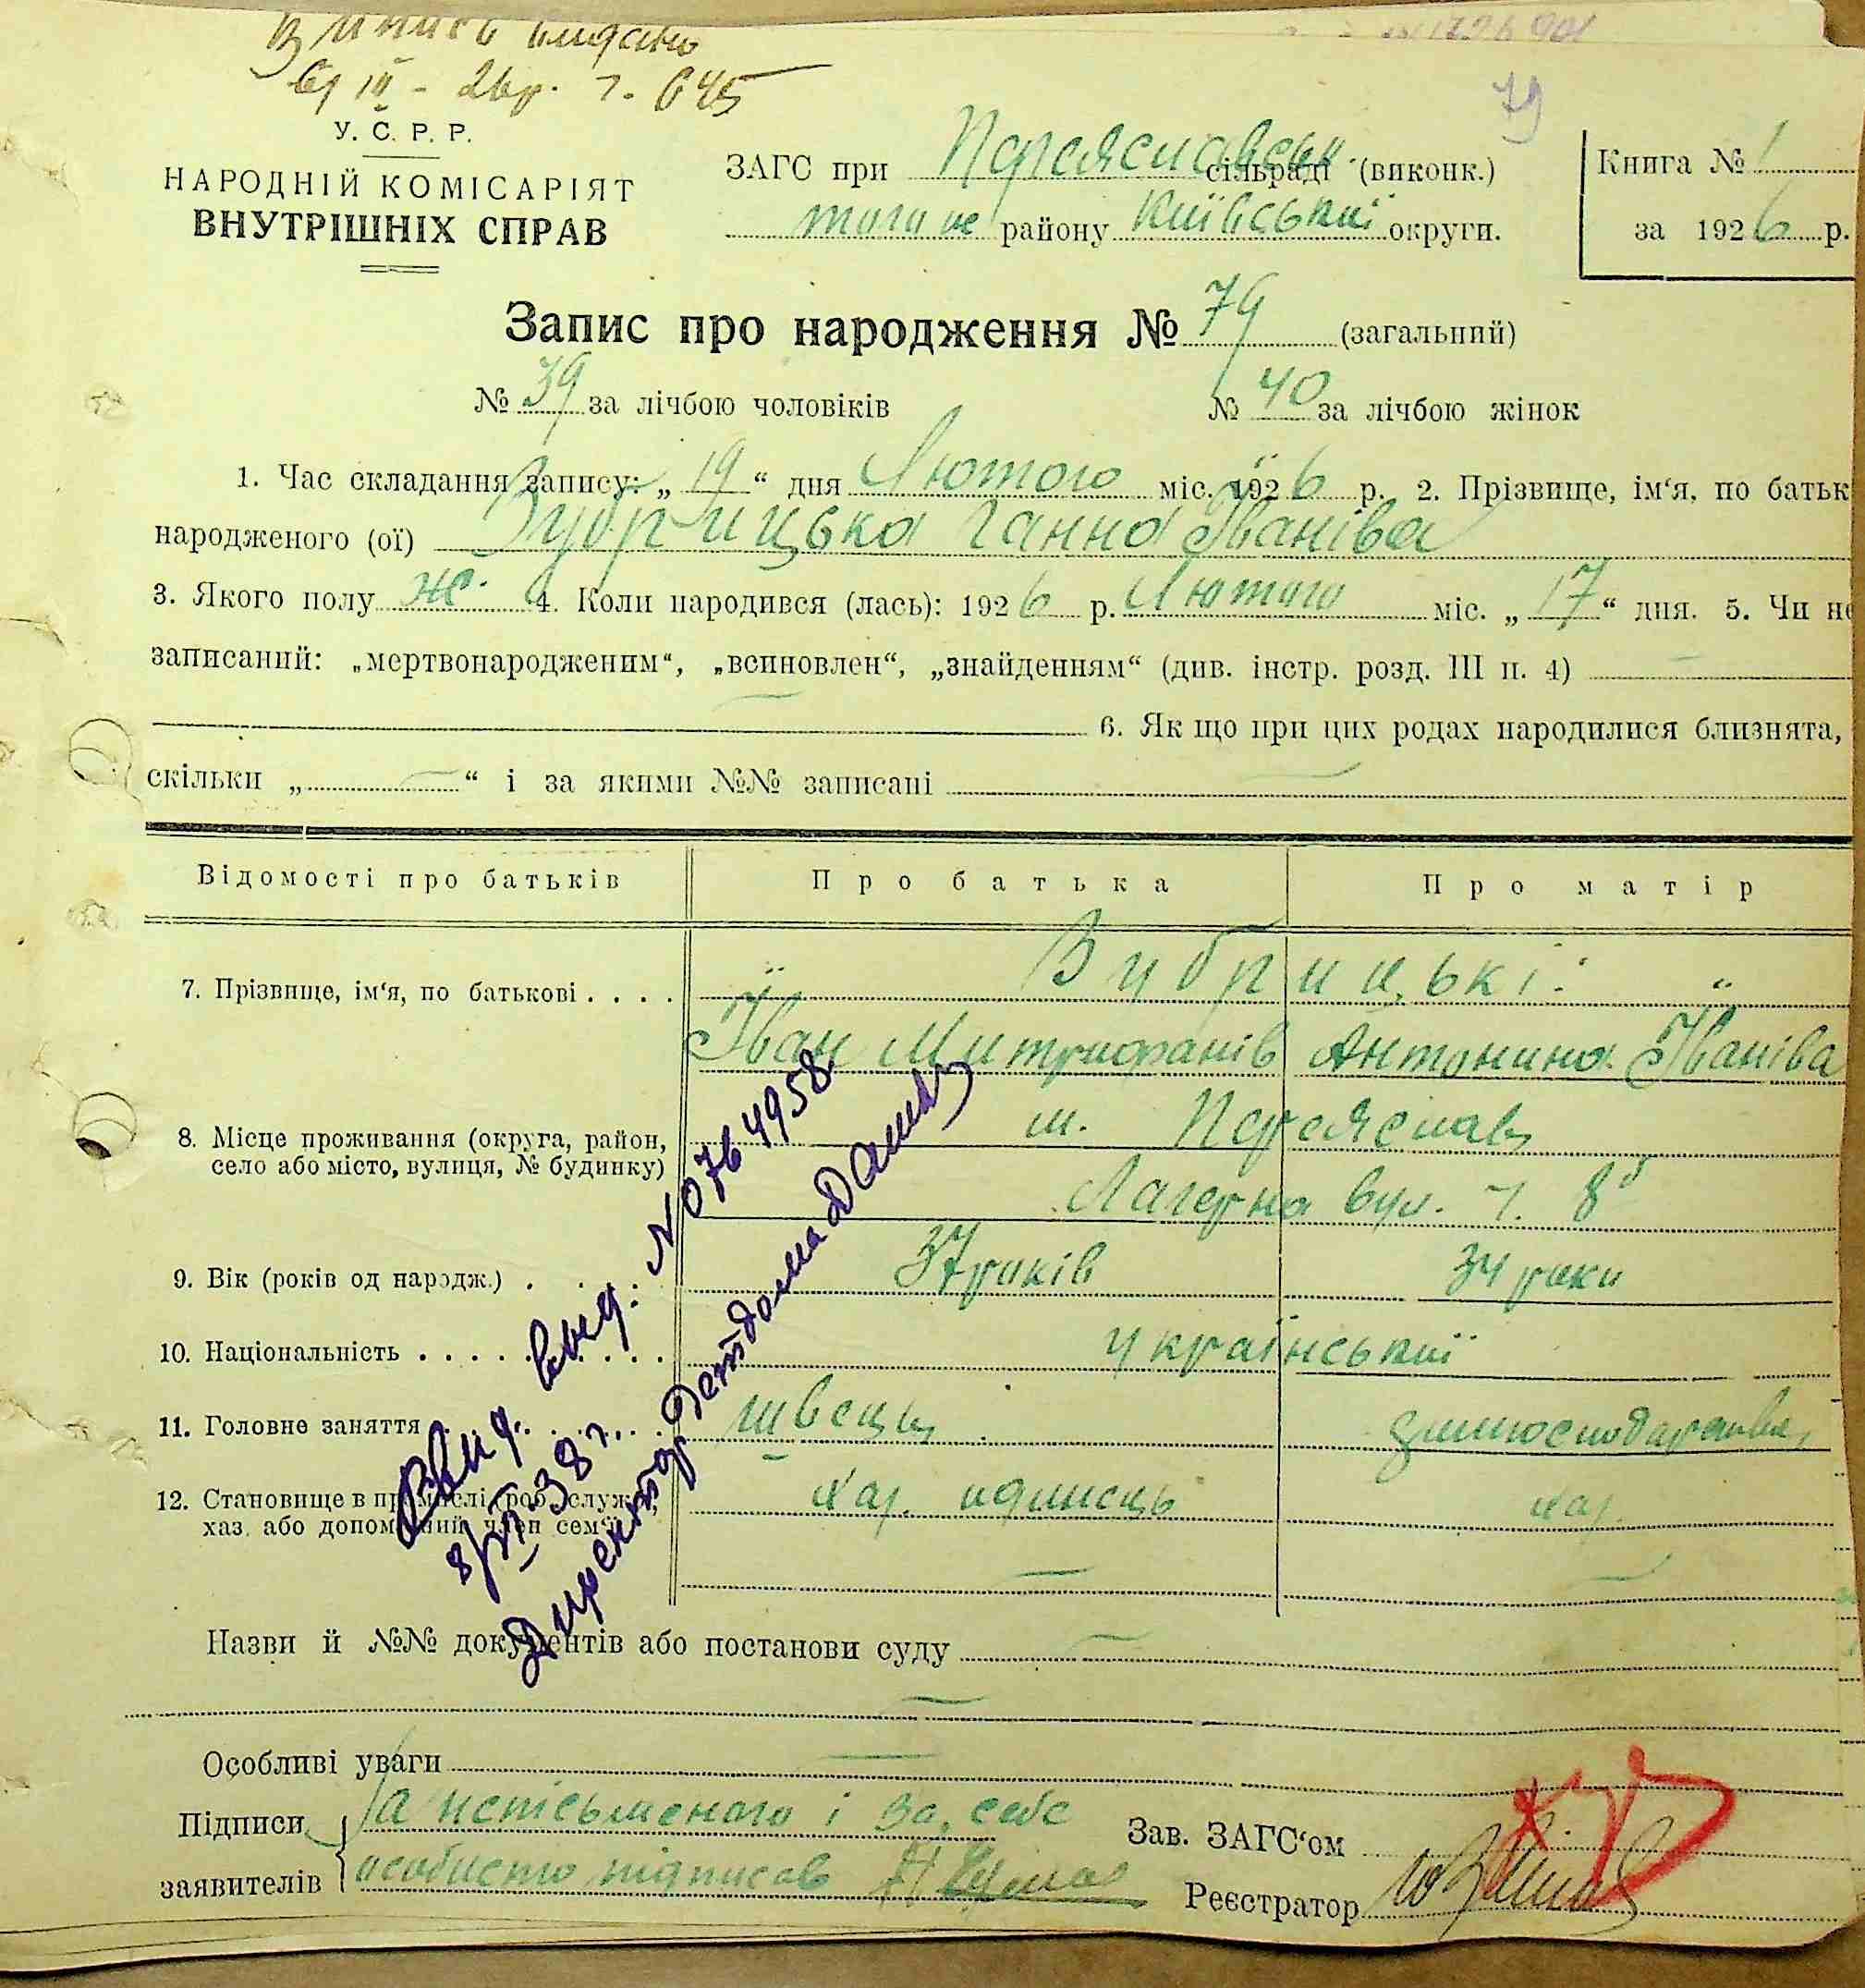 У. С. Р. Р.
НАРОДНІЙ КОМІСАРІЯТ
ВНУТРІШНІХ СПРАВ
79
ЗАГС при Переяславськ сільраді (виконк.)
того ж району Київської округи.
Книга № 1
за 1926 р.
Запис про народження № 79 (загальний)
№ 39 за лічбою чоловіків № 40 за лічбою жінок
1. Час складання запису: „ 19 “ дня Лютого міс. 1926 р. 2. Прізвище, ім‘я, по батьк
народженого (ої) Зубрицька Ганна Іваніва
3. Якого полу ж. 4. Коли народився (лась): 1926 р. Лютого міс. „ 17 “ дня. 5. Чи не
записаний: „мертвонародженим“, „всиновлен“, „знайденням“ (див. інстр. розд. III п. 4)
6. Як що при цих родах народилися близнята,
скільки „ “ і за якими №№ записані
Відомості про батьків Про батька Про матір
7. Прізвище, ім‘я, по батькові . . . . Зубрицькі
Іван Митрофанів Антонина Іваніва
8. Місце проживання (округа, район,
село або місто, вулиця, № будинку)
м. Переяслав
Лагерна вул. ч. 8
9. Вік (років од народж.) . 37 років 34 роки
10. Національність . . . . . . . . . української
11. Головне заняття швець домогосподарство
12. Становище в промислі (роб., служ.,
хаз. або допоміжний член сем‘ї)
хаз. одинець хаз.
Вид. свід: № 0764958
8/VI-38 г.
Директор Детдома
Назви й №№ документів або постанови суду
Особливі уваги
Підписи За неписьменого і за себе
заявителів особисто підписав
Зав. ЗАГС‘ом
Реєстратор